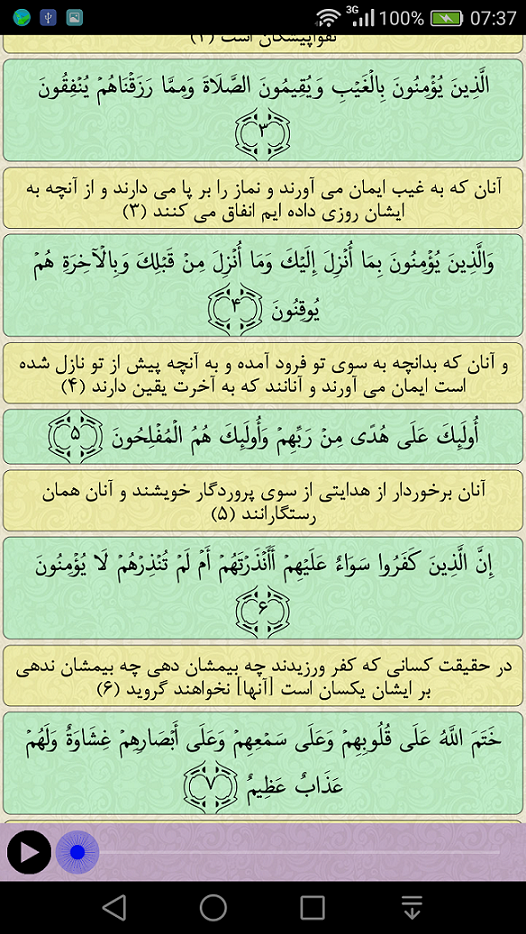 3G 100% 07:37
تقواپیشگان است (۲)
الَّذِينَ يُؤْمِنُونَ بِالْغَيْبِ وَيُقِيمُونَ الصَّلَاةَ وَمِمَّا رَزَقْنَاهُمْ يُنْفِقُونَ
۳
آنان که به غیب ایمان می آورند و نماز را بر پا می دارند و از آنچه به
ایشان روزی داده ایم انفاق می کنند (۳)
وَالَّذِينَ يُؤْمِنُونَ بِمَا أُنْزِلَ إِلَيْكَ وَمَا أُنْزِلَ مِنْ قَبْلِكَ وَبِالْآخِرَةِ هُمْ
يُوقِنُونَ ۴
و آنان که بدانچه به سوی تو فرود آمده و به آنچه پیش از تو نازل شده
است ایمان می آورند و آنانند که به آخرت یقین دارند (۴)
أُولَئِكَ عَلَى هُدًى مِنْ رَبِّهِمْ وَأُولَئِكَ هُمُ الْمُفْلِحُونَ ۵
آنان برخوردار از هدایتی از سوی پروردگار خویشند و آنان همان
رستگارانند (۵)
إِنَّ الَّذِينَ كَفَرُوا سَوَاءٌ عَلَيْهِمْ أَأَنْذَرْتَهُمْ أَمْ لَمْ تُنْذِرْهُمْ لَا يُؤْمِنُونَ
۶
در حقیقت کسانی که کفر ورزیدند چه بیمشان دهی چه بیمشان ندهی
بر ایشان یکسان است [آنها] نخواهند گروید (۶)
خَتَمَ اللَّهُ عَلَى قُلُوبِهِمْ وَعَلَى سَمْعِهِمْ وَعَلَى أَبْصَارِهِمْ غِشَاوَةٌ وَلَهُمْ
عَذَابٌ عَظِيمٌ ۷